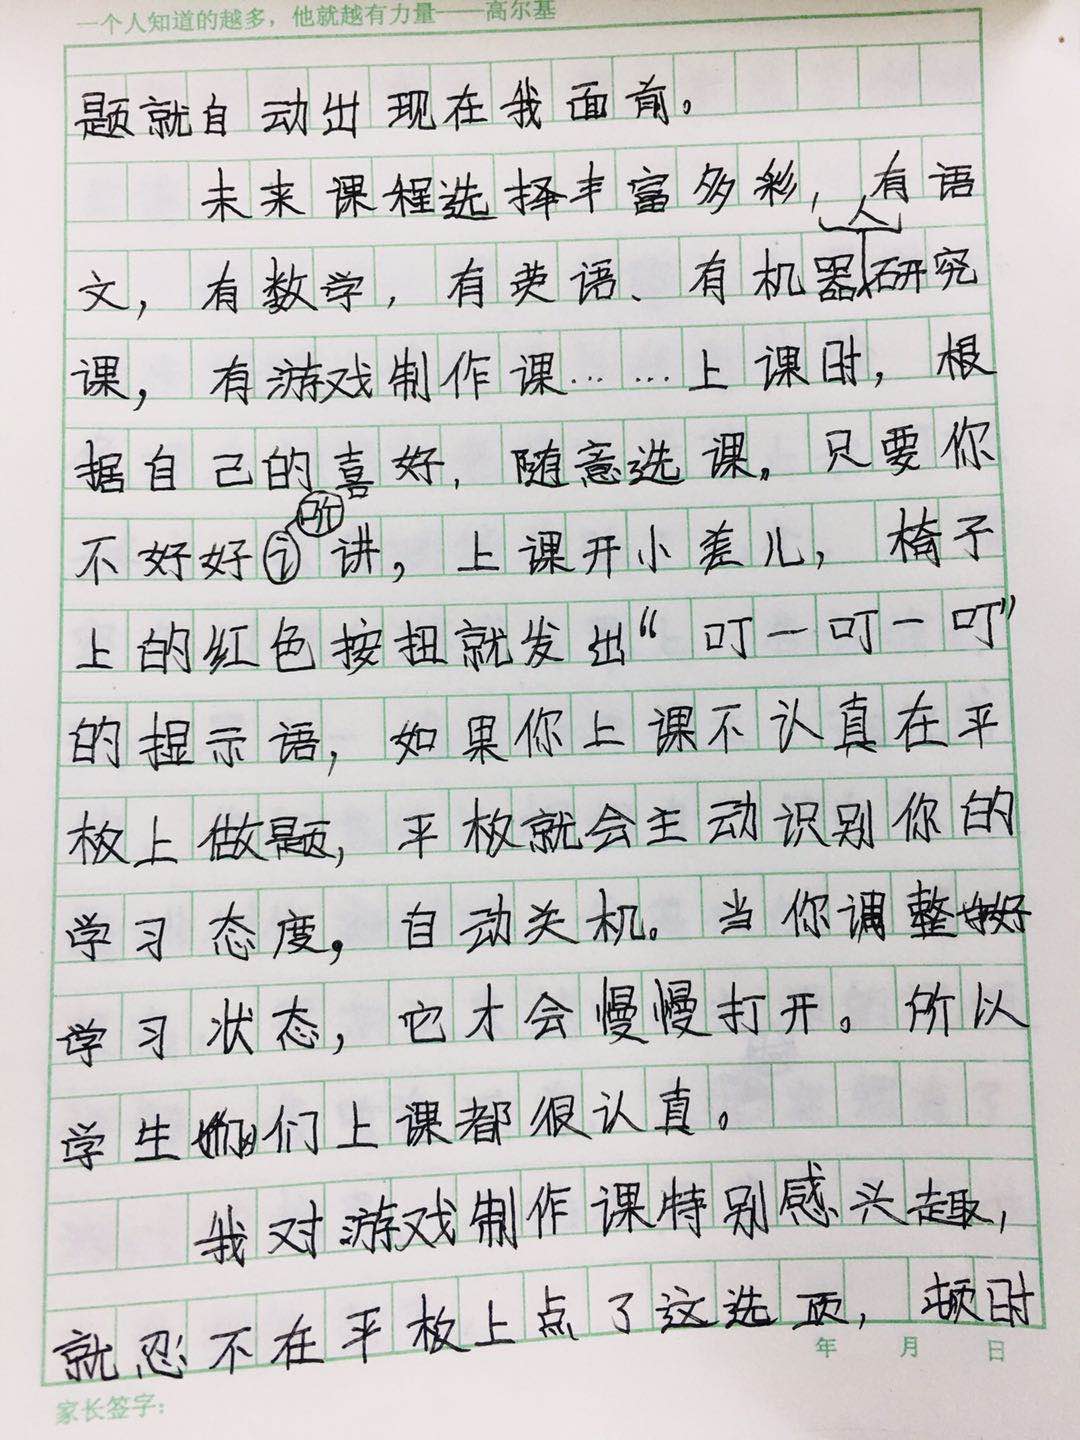 一个人知道的越多，他就越有力量——高尔基
题就自动出现在我面前。
未来课程选择丰富多彩，有语
文，有数学，有英语、有机器人研究
课，有游戏制作课……上课时，根
据自己的喜好，随意选课。只要你
不好好听讲，上课开小差儿，椅子
上的红色按扭就发出“叮一叮一叮”
的提示语，如果你上课不认真在平
板上做题，平板就会主动识别你的
学习态度，自动关机。当你调整好
学习状态，它才会慢慢打开。所以
学生们上课都很认真。
我对游戏制作课特别感兴趣，
就忍不在平板上点了这选项，顿时
年 月 日
家长签字：